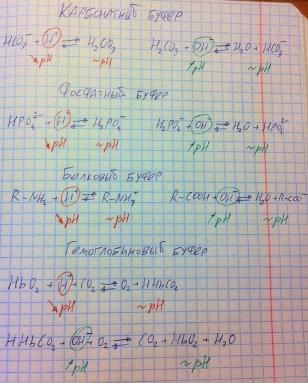 КАРБОНАТНЫЙ БУФЕР
HCO₃⁻ + H⁺ ⇌ H₂CO₃ H₂CO₃ + OH⁻ ⇌ H₂O + HCO₃⁻
↘pH ~pH ↗pH ~pH
ФОСФАТНЫЙ БУФЕР
HPO₄²⁻ + H⁺ ⇌ H₂PO₄⁻ H₂PO₄⁻ + OH⁻ ⇌ H₂O + HPO₄²⁻
↘pH ~pH ↗pH ~pH
БЕЛКОВЫЙ БУФЕР
R-NH₂ + H⁺ ⇌ R-NH₃⁺ R-COOH + OH⁻ ⇌ H₂O + R-COO⁻
↘pH ~pH ↗pH ~pH
ГЕМОГЛОБИНОВЫЙ БУФЕР
HbO₂ + H⁺ + CO₂ ⇌ O₂ + HHbCO₂
↘pH ~pH
HHbCO₂ + OH⁻ + O₂ ⇌ CO₂ + HbO₂ + H₂O
↗pH ~pH